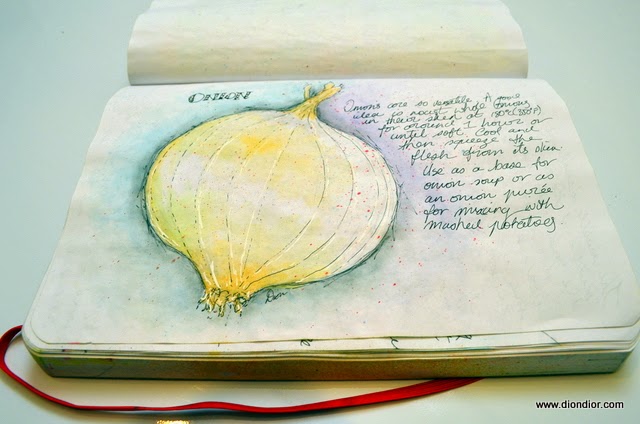 ONION
Onions are so versatile. A good
idea is roast whole onions
in their skin at 180°C (350°F)
for around 1 hour or
until soft. Cool and
than squeeze the
flesh from its skin.
Use as a base for
onion soup or as
an onion purée
for mixing with
mashed potatoes
Dion
www.diondior.com